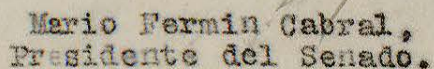 Mario Fermin Cabral,
Presidente del Senado.